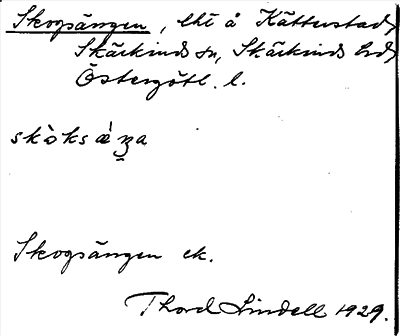 Skogsängen, lht å Kätterstad,
Skärkinds sn, Skärkinds hd,
Östergötl. l.
skòksǽŋa
Skogsängen ek.
Thord Lindell 1929.